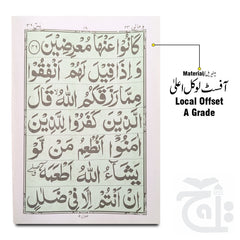 كَانُوْا عَنْهَا مُعْرِضِيْنَ
وَاِذَا قِيْلَ لَهُمْ اَنْفِقُوْا
مِمَّا رَزَقَكُمُ اللّٰهُ قَالَ
الَّذِيْنَ كَفَرُوْا لِلَّذِيْنَ
اٰمَنُوْٓا اَنُطْعِمُ مَنْ لَّوْ
يَشَآءُ اللّٰهُ اَطْعَمَهٗٓ
اِنْ اَنْتُمْ اِلَّا فِيْ ضَلٰلٍ
Material
آفسٹ لوکل اعلیٰ
Local Offset
A Grade